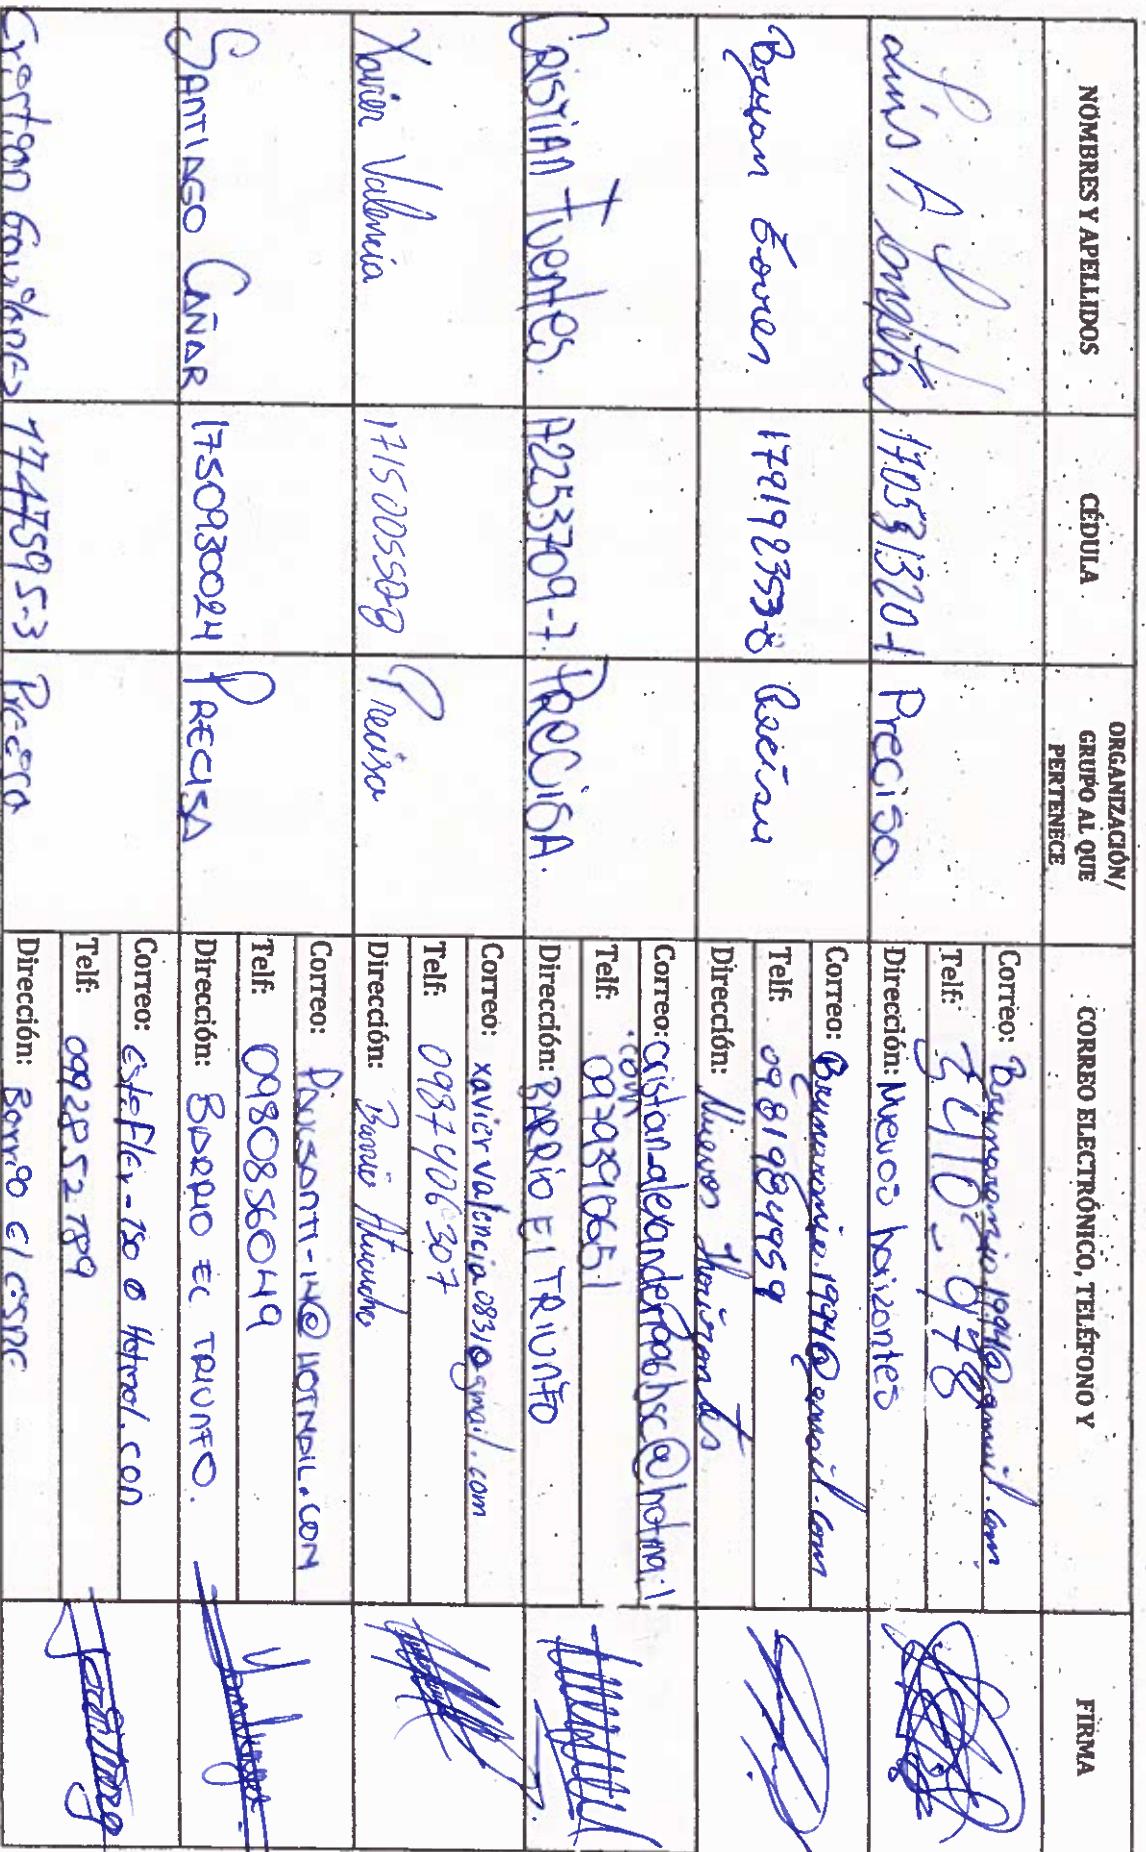 NOMBRES Y APELLIDOS
CÉDULA
ORGANIZACIÓN/
GRUPO AL QUE
PERTENECE
CORREO ELECTRÓNICO, TELÉFONO Y
FIRMA
Luis A
170531320-1
Precisa
Correo: @gmail.com
Telf: 3410-978
Dirección: Nuevos horizontes
179192353-8
Correo: 1994@gmail.com
Telf: 0981984959
Dirección: Nuevos Horizontes
CRISTIAN FUENTES.
172253709-7
PRECISA.
Correo: cristian_alexander_996hsc@hotmail
.com
Telf: 0979390651
Dirección: BARRIO El TRIUNFO
Xavier Valencia
1715005508
Precisa
Correo: xaviervalencia0831@gmail.com
Telf: 0987406307
Dirección: Barrio
SANTIAGO CAÑAR
1750930024
PRECISA
Correo: PAULSANTI-14@HOTMAIL.COM
Telf: 0980856049
Dirección: BARRIO EL TRIUNFO.
1747595-3
Precisa
Correo: @Hotmail.com
Telf: 0992852789
Dirección: Barrio El